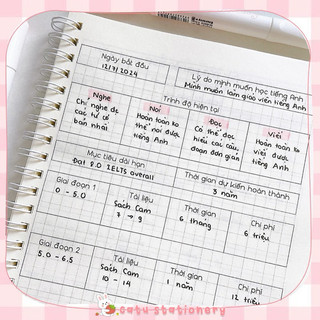 Ngày bắt đầu
12/7/2024
Lý do mình muốn học tiếng Anh
Mình muốn làm giáo viên tiếng Anh
Trình độ hiện tại
Nghe
Chỉ nghe đc
các từ cơ
bản nhất
Nói
Hoàn toàn ko
thể nói được
tiếng Anh
Đọc
Có thể đọc
hiểu các câu,
đoạn đơn giản
Viết
Hoàn toàn ko
viết được
tiếng Anh
Mục tiêu dài hạn
Đạt 8.0 IELTS overall
Thời gian dự kiến hoàn thành
3 năm
Giai đoạn 1
0 - 5.0
Tài liệu
Sách Cam
7 → 9
Thời gian
6 tháng
Chi phí
6 triệu
Giai đoạn 2
5.0 - 6.5
Tài liệu
Sách Cam
10 - 14
Thời gian
1 năm
Chi phí
12 triệu
catu stationery